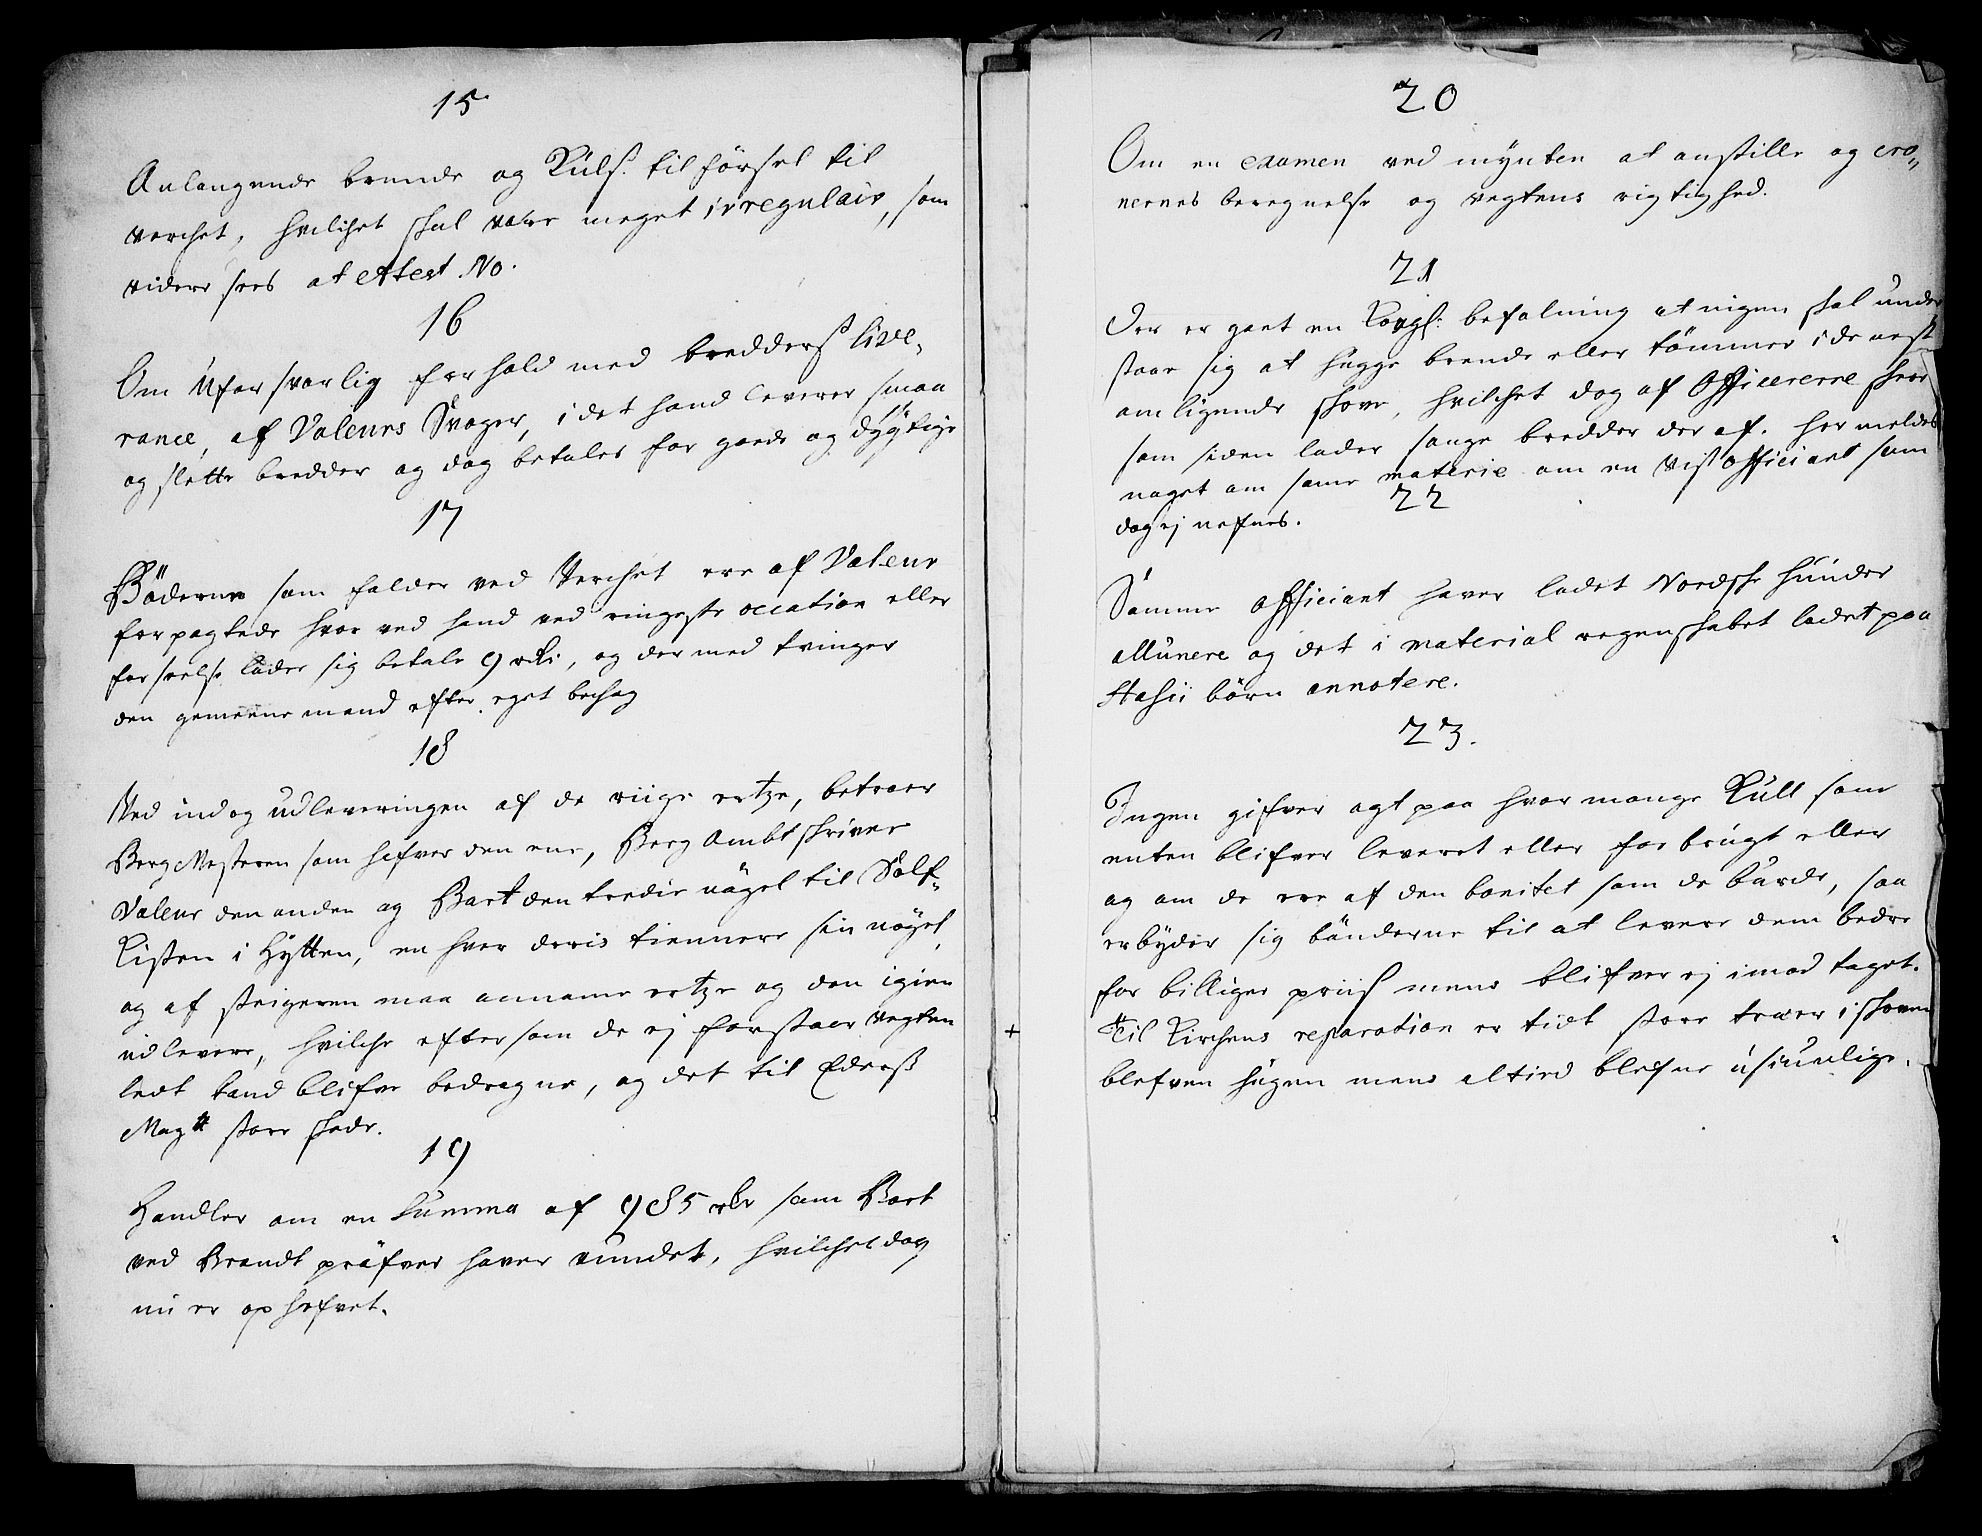 15
Anlangende brende og Kuls tilförsel til
verchet, hvilchet skal være meget irregulair, som
videre sees af Attest No.
16
Om Uforsvarlig forhold med bredders live-
rance, af Valeurs Svager, i det hand leverer smaa
og slette bredder og dog betales for goede og dygtige
17
Böderne som falder ved Verchet ere af Valeur
forpagtede hvor ved hand ved ringeste occation eller
forseelse lader sig betale 9 rdr, og der med tvinger
den gemeene mand efter eget behag
18
Ved ind og udleveringen af de riige ertze, betroer
Berg Mesteren som hafver den ene, Berg Ambtskriver
Valeur den anden og Bart den tredie nögel til Sölf-
Kisten i Hytten, en hver deris tiennere sin nögel,
og af steigeren maa anname ertze og den igien
udlevere, hvilche eftersom de ej forstaar vegten
let kand blifve bedragne, og det til Eders
Magtt store skade.
19
Handler om en Summa af 985 rdr som Bart
ved Brandt pröfver haver vundet, hvilchet dog
nu er ophefvet.
20
Om en examen ved mÿnten at anstille og cro-
nernes beregnelse og vegtens rigtighed.
21
Der er gaet en Kongl: befalning at ingen skal under
staae sig at hugge brende eller tömmer i de nest
omligende skove, hvilchet dog af Officererne skeer
som siden lader sauge bredder der af. her meldes
noget om same materie om en vis Officiant som
dog ej nefnes.
22
Samme Officiant haver ladet Nordske hunder
allunere og det i material regenskabet ladet paa
börn annotere.
23.
Ingen gifver agt paa hvor mange Kull som
enten blifver leveret eller forbrugt eller
og om de ere af den bonitet som de burde, saa
erbyder sig bönderne til at levere dem bedre
for billiger priis mens blifver ej imod taget.
Til Kirchens reparation er tidt store træer i skoven
blefven hugen mens altied blefne usiunlige.